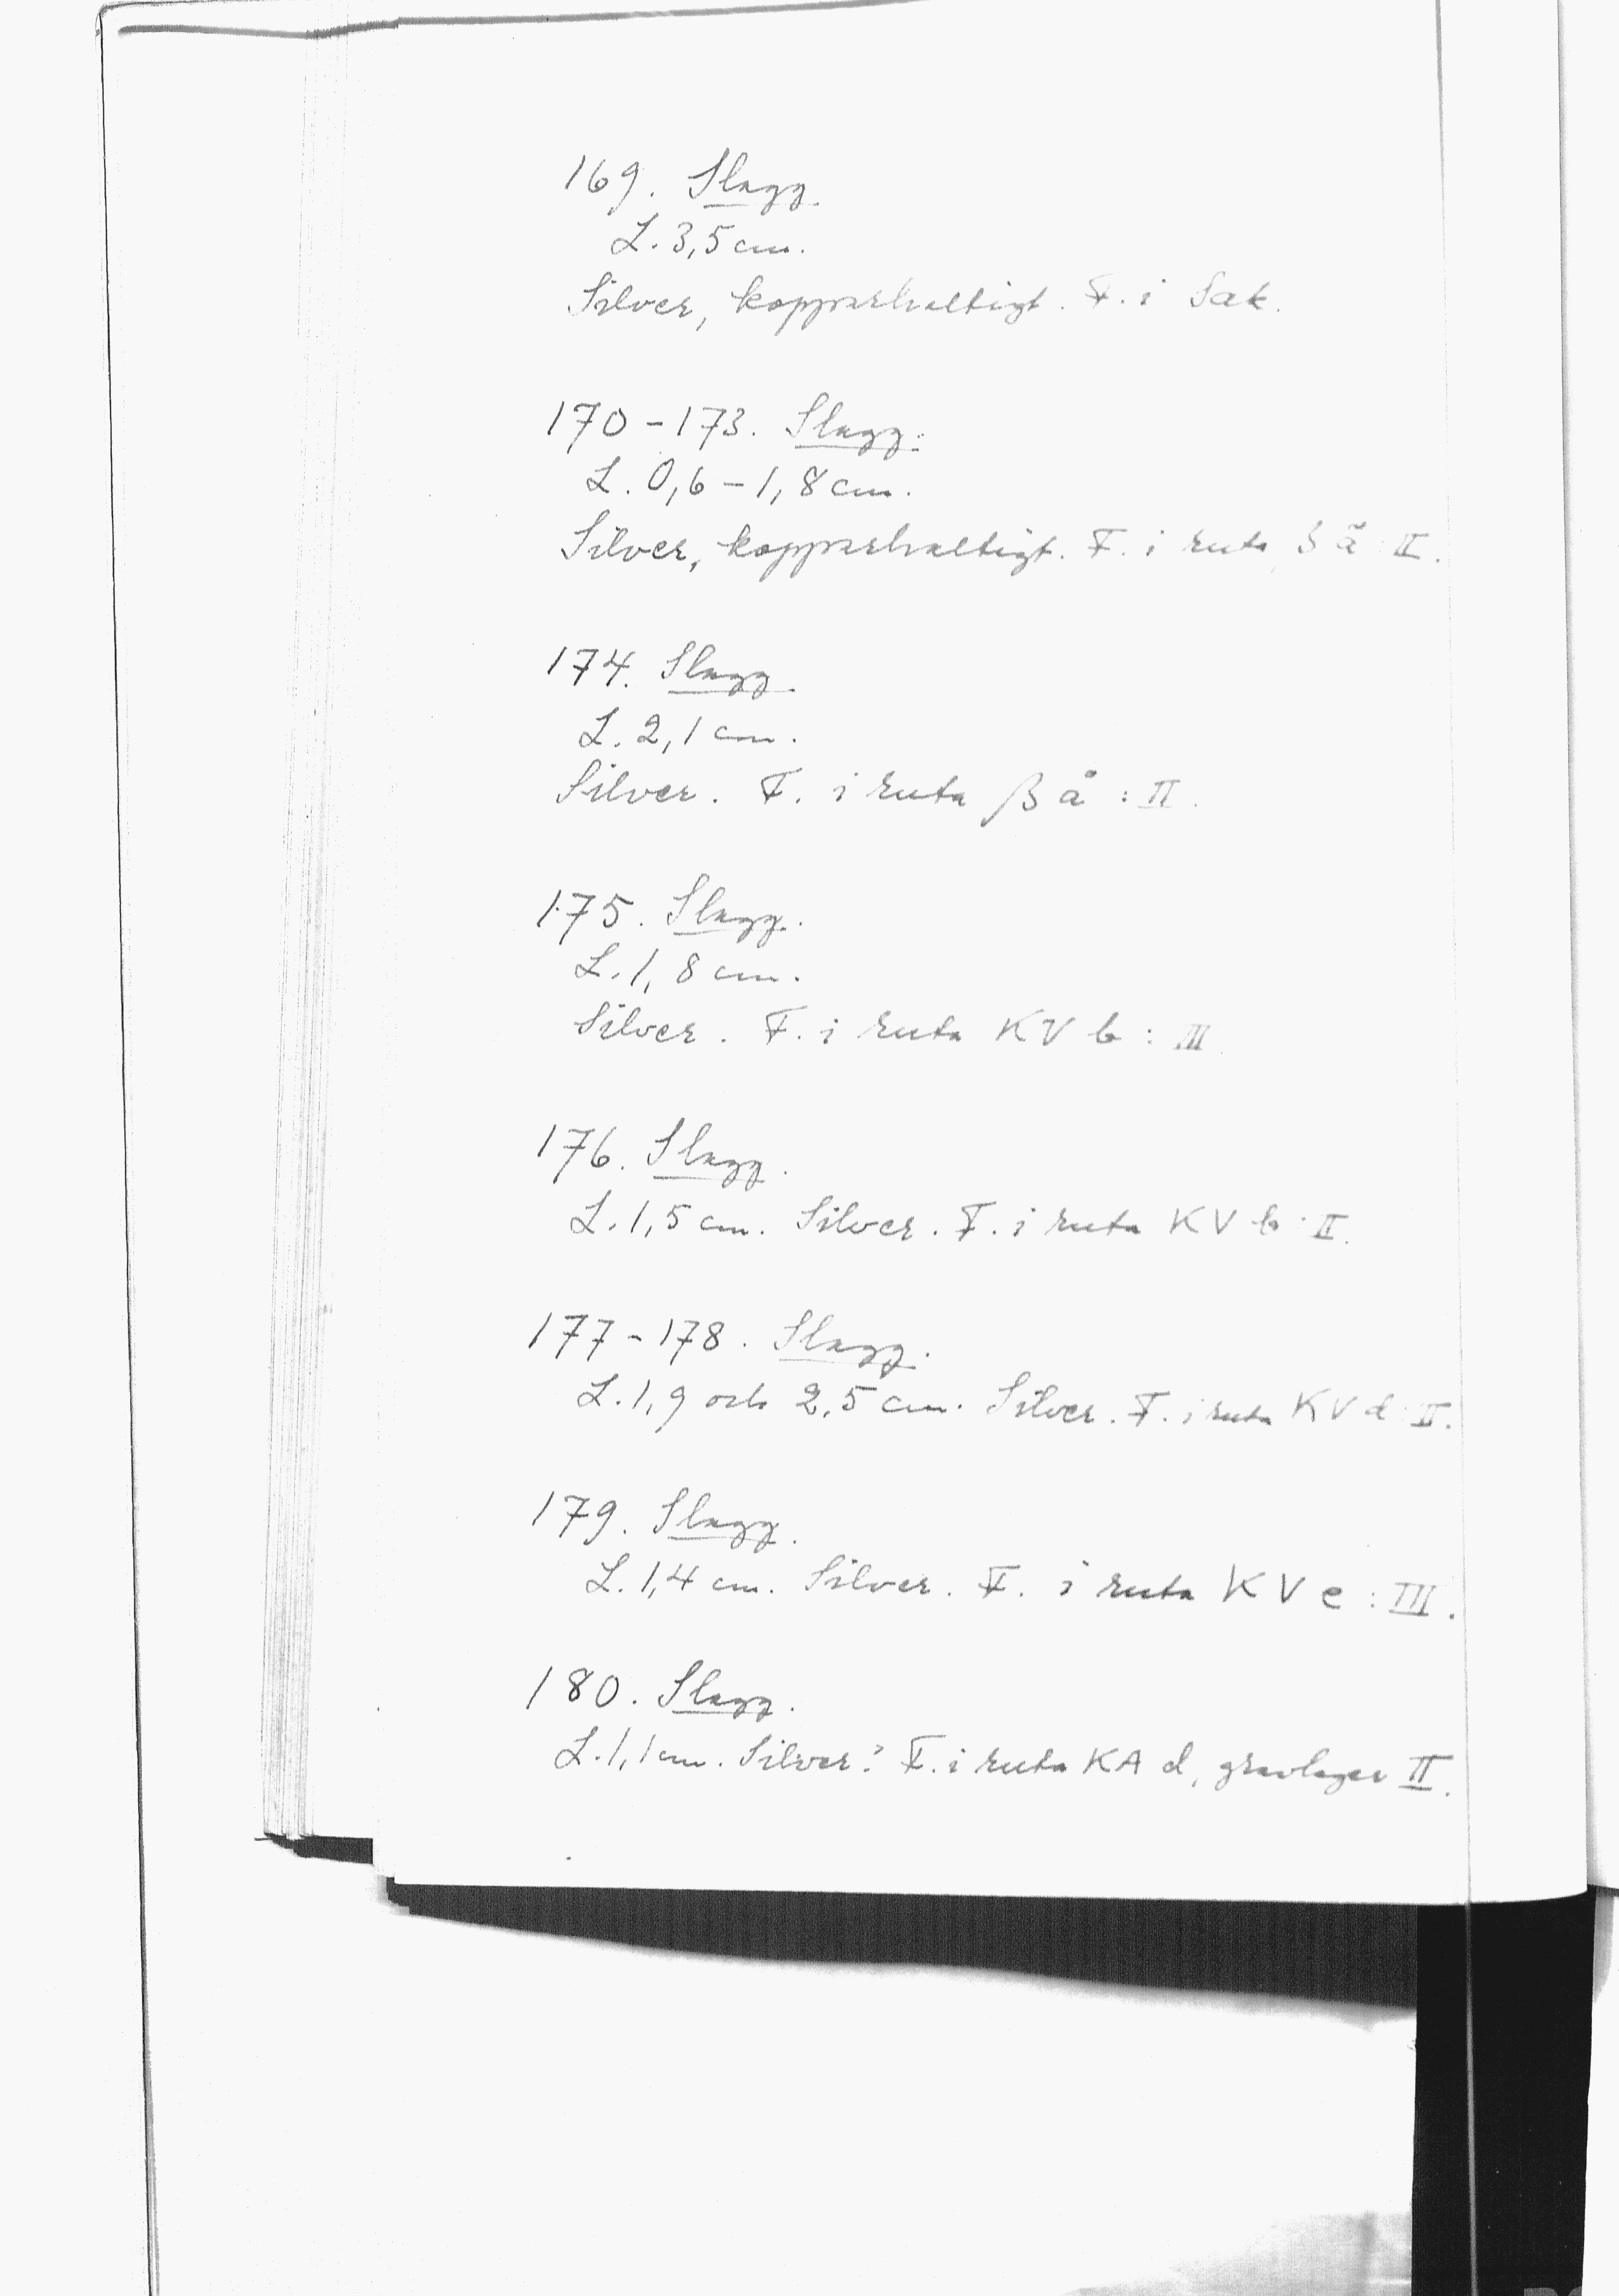 169. Slagg.
L. 3,5 cm.
Silver, kopparhaltigt. F. i Sak.
170-173. Slagg.
L. 0,6-1,8 cm.
Silver, kopparhaltigt. F. i ruta ä: II.
174. Slagg.
L. 2,1 cm.
Silver. F. i ruta β å: II.
175. Slagg.
L. 1,8 cm.
Silver. F. i ruta KV b: III
176. Slagg.
L. 1,5 cm. Silver. F. i ruta KV b: II.
177-178. Slagg.
L. 1,9 och 2,5 cm. Silver. F. i ruta KV d: II.
179. Slagg.
L. 1,4 cm. Silver. F. i ruta KV e: III.
180. Slagg.
L. 1,1 cm. Silver? F. i ruta KA d, gravlager II.